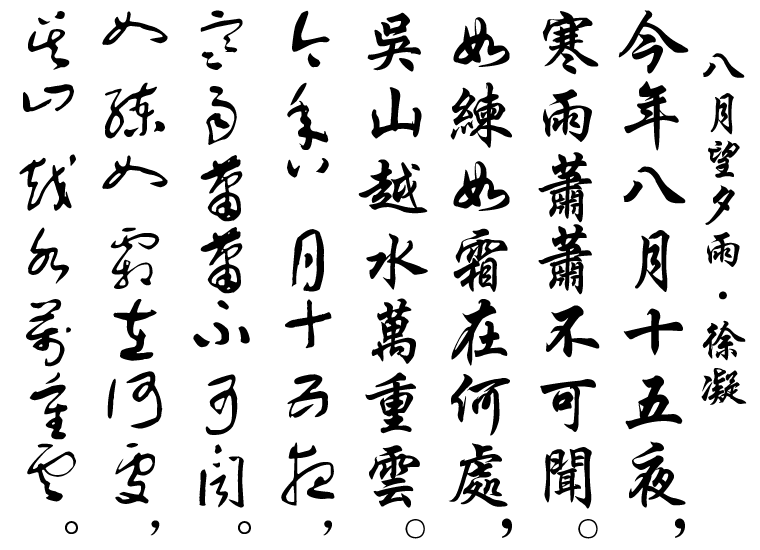 八月望夕雨・徐凝
今年八月十五夜，
寒雨蕭蕭不可聞。
如練如霜在何處，
吳山越水萬重雲。
今年八月十五夜，
寒雨蕭蕭不可聞。
如練如霜在何處，
吳山越水萬重雲。